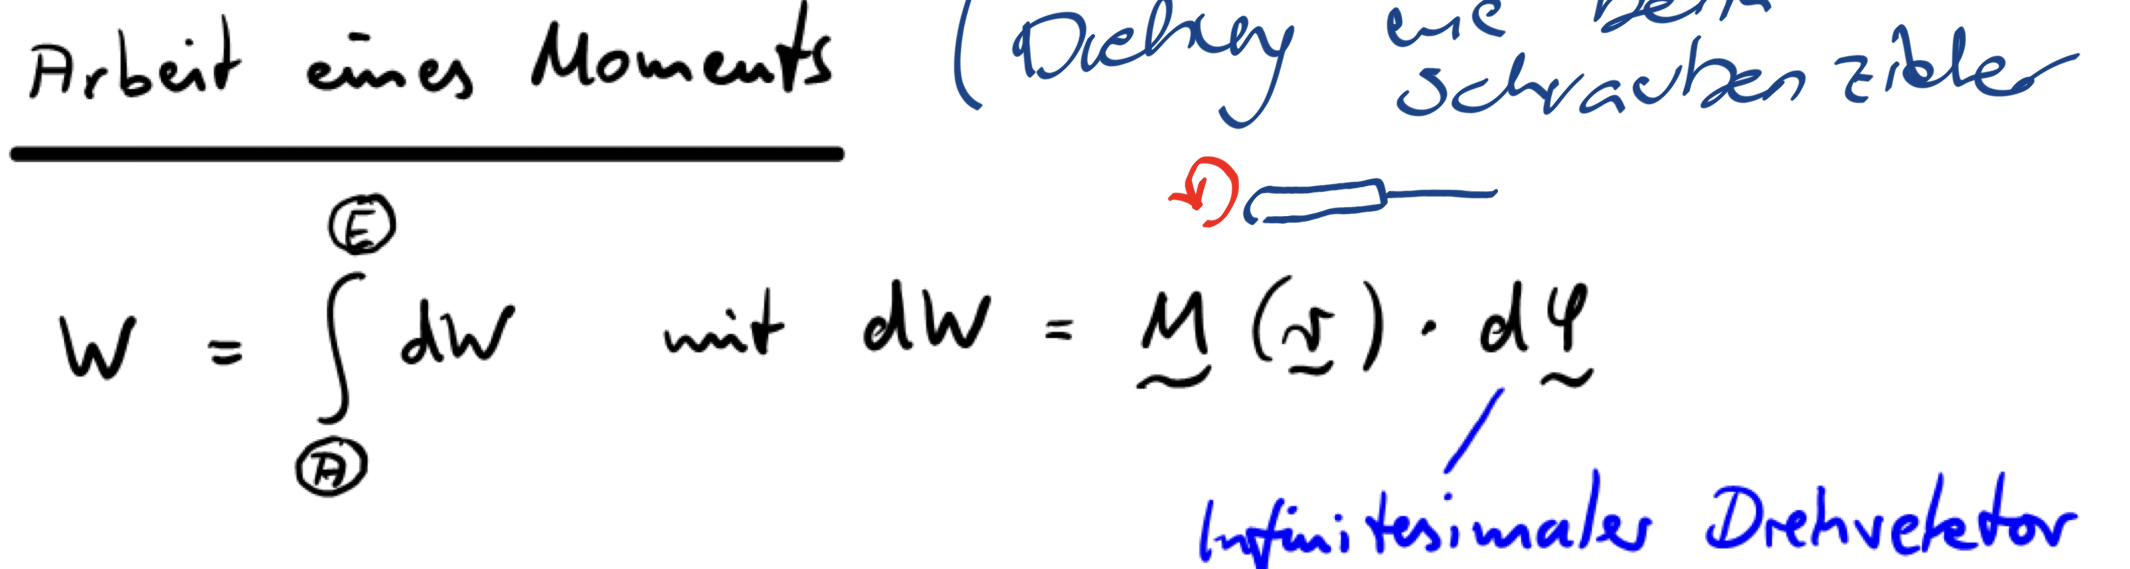 Arbeit eines Moments
(Drehung wie beim
Schraubenzieher
W = ∫ dW mit dW = M̰ (r̰) · dφ̰
Ⓔ
Ⓐ
Infinitesimaler Drehvektor